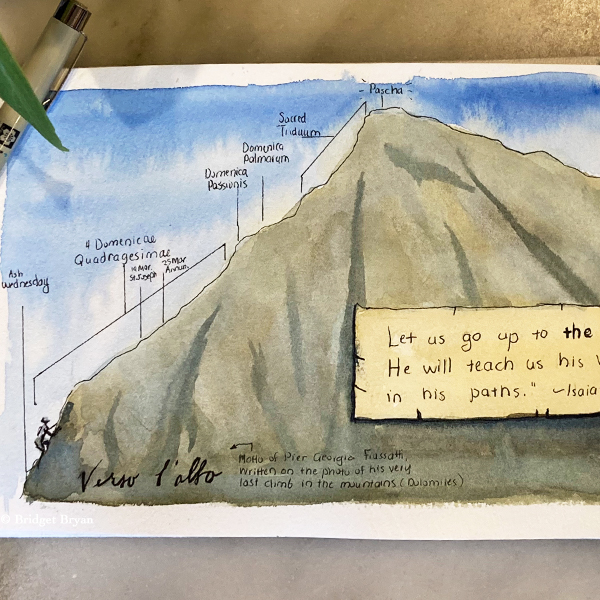 Pascha
Sacred
Triduum
Domenica
Palmarum
Domenica
Passionis
4 Domenicae
Quadragesimae
19 Mar.
St. Joseph
25 Mar.
Annun.
Ash
Wednesday
Let us go up to the
He will teach us his
in his paths." ~Isaia
Verso l'alto
Motto of Pier Giorgio Frassati,
written on the photo of his very
last climb in the mountains. (Dolomites)
© Bridget Bryan